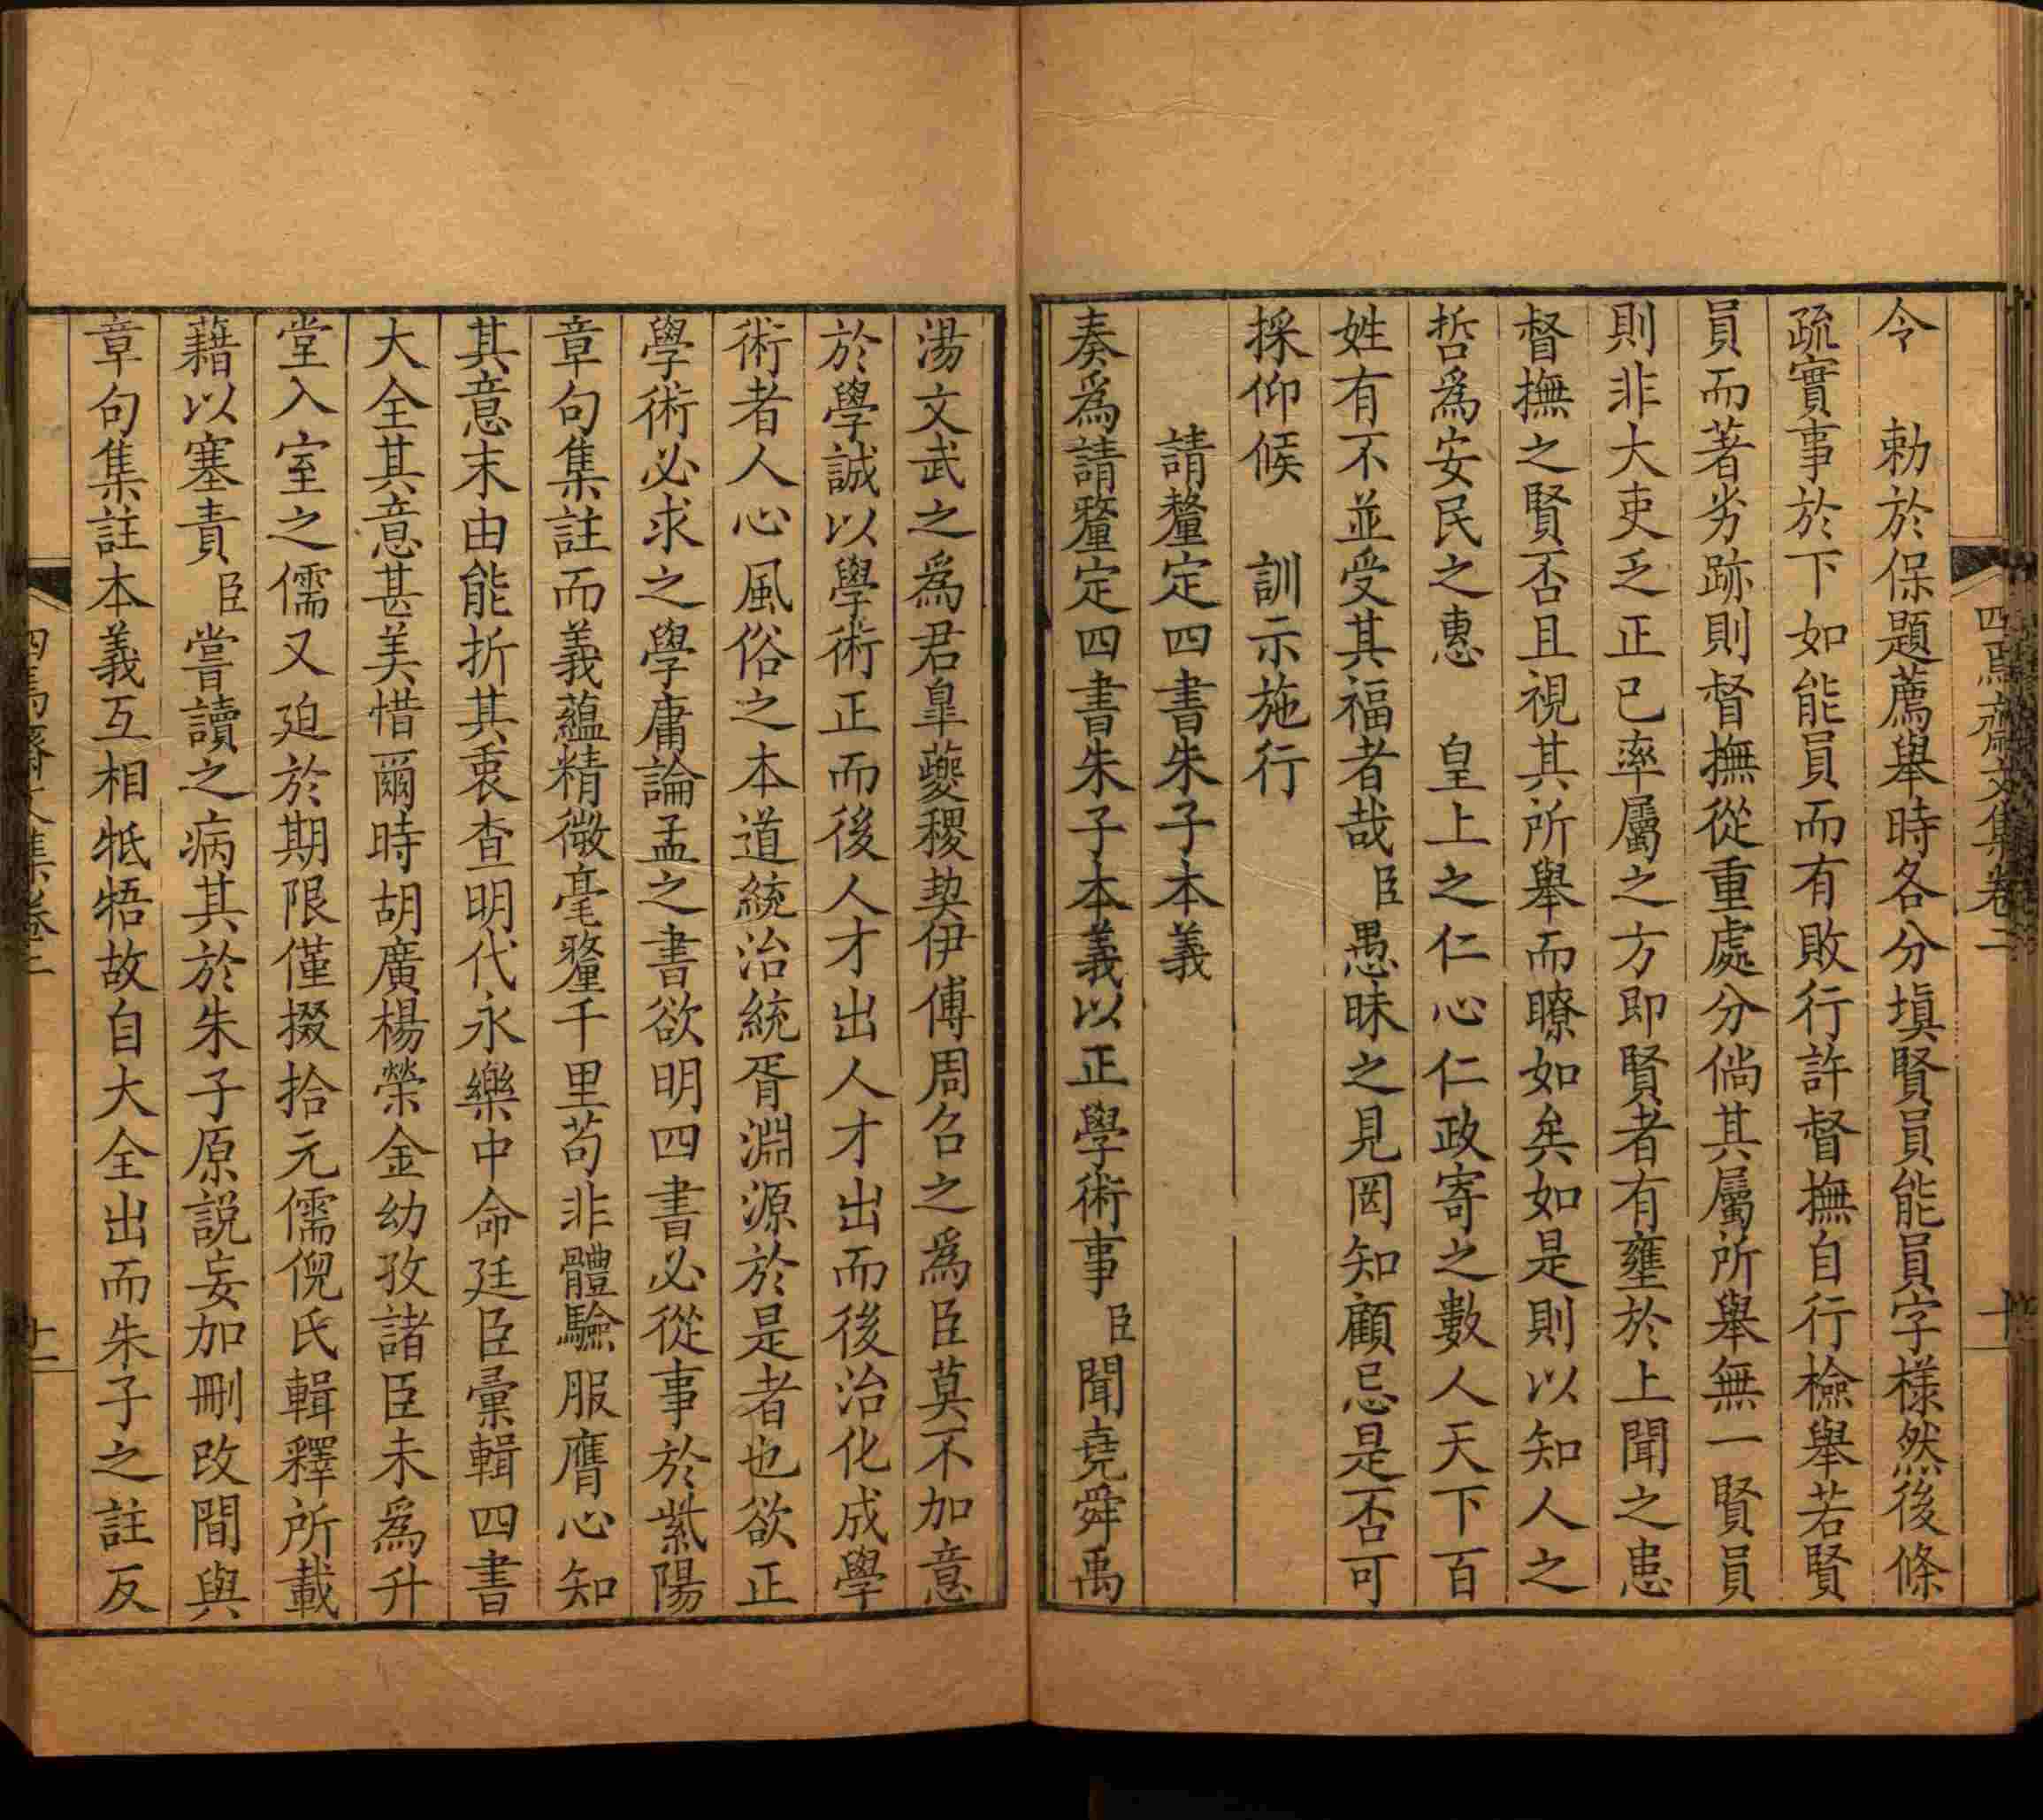 四焉齋文集卷二
十
令　勅於保題薦舉時各分塡賢員能員字樣然後條
疏實事於下如能員而有敗行許督撫自行檢舉若賢
員而著劣跡則督撫從重處分倘其屬所舉無一賢員
則非大吏乏正已率屬之方即賢者有壅於上聞之患
督撫之賢否且視其所舉而瞭如矣如是則以知人之
哲爲安民之惠　皇上之仁心仁政寄之數人天下百
姓有不並受其福者哉臣愚昧之見罔知顧忌是否可
採仰候　訓示施行
請釐定四書朱子本義
奏爲請釐定四書朱子本義以正學術事臣聞堯舜禹
湯文武之爲君臯夔稷契伊傅周召之爲臣莫不加意
於學誠以學術正而後人才出人才出而後治化成學
術者人心風俗之本道統治統胥淵源於是者也欲正
學術必求之學庸論孟之書欲明四書必從事於紫陽
章句集註而義蘊精微毫釐千里苟非體驗服膺心知
其意末由能折其衷查明代永樂中命廷臣彙輯四書
大全其意甚美惜爾時胡廣楊榮金幼孜諸臣未爲升
堂入室之儒又迫於期限僅掇拾元儒倪氏輯釋所載
藉以塞責臣嘗讀之病其於朱子原説妄加刪改間與
章句集註本義互相牴牾故自大全出而朱子之註反
四焉齋文集卷二
十一